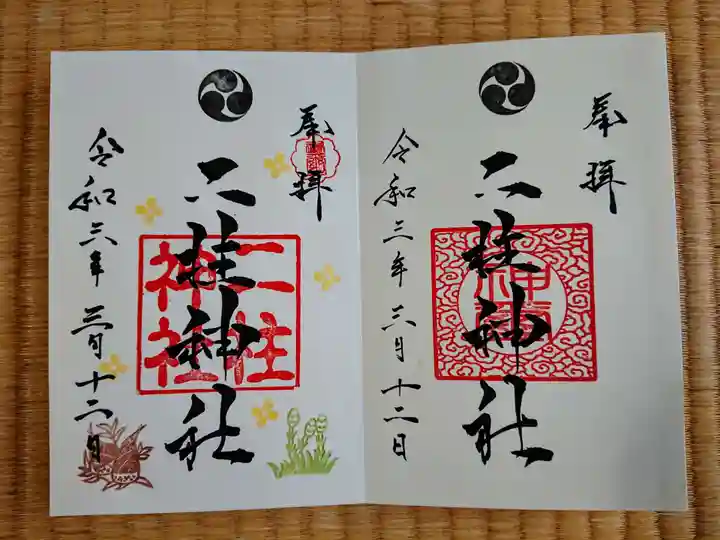 奉拝
二柱神社
令和三年六月十二日
奉拝
二柱神社
令和六年三月十二日
二柱
神社